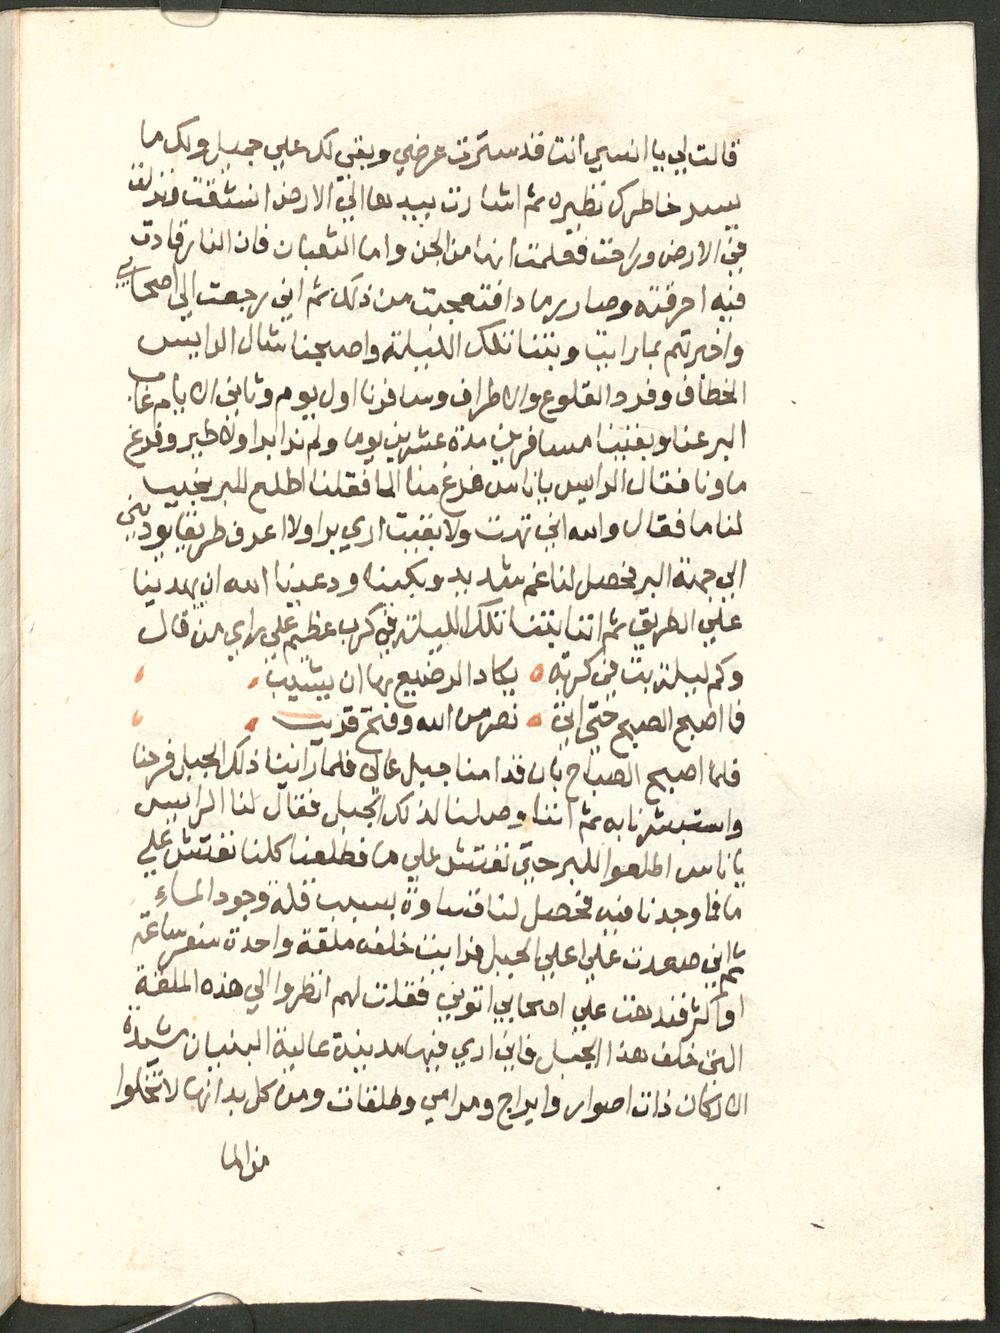 قالت لي يا انسي انت قد سترت عرضي وبقي لك علي جميل ولك ما
يسر خاطرك نظيره ثم اشارت بيدها الي الارض انشقت فنزلت
في الارض وراحت فعلمت انها من الجن واما الثعبان فان النار قادت
فيه احرقته وصار رمادا فتعجبت من ذلك ثم اني رجعت الي اصحابي
واخبرتهم بما رايت وبتنا تلك الليلة واصبحنا شال الرايس
الخطاف وفرد القلوع والاطراف وسافرنا اول يوم وثاني الايام غاب
البر عنا وبقينا مسافرين مدة عشرين يوما ولم نرا برا ولا طير وفرغ
ماونا فقال الرايس يا ناس فرغ منا الما فقلنا اطلع للبر نجيب
لنا ما فقال والله اني تهت ولا بقيت اري برا ولا اعرف طريقا يوديني
الي جهة البر فحصل لنا غم شديد وبكينا ودعينا الله ان يهدينا
علي الطريق ثم اننا بتنا تلك الليلة في كرب عظيم علي راي من قال
وكم ليلة بت في كربة يكاد الرضيع بها ان يشيب
فا اصبح الصبح حتي اتي نصر من الله وفتح قريب
فلما اصبح الصباح بان قدامنا جبل عالي فلما راينا ذلك الجبل فرحنا
واستبشرنا به ثم اننا وصلنا لذلك الجبل فقال لنا الرايس
يا ناس اطلعوا للبر حتي نفتش علي ما فطلعنا كلنا نفتش علي
ما فما وجدنا فيه فحصل لنا قساوة بسبب قلة وجود الماء
ثم اني صعدت علي اعلي الجبل فرايت خلفه ملقة واحدة سفر ساعة
او اكثر فندهت علي اصحابي اتوني فقلت لهم انظروا الي هذه الملقة
التي خلف هذا الجبل فاني اري فيها مدينة عالية البنيان مشيدة
الاركان ذات اصوار وابراج ومرامي وطلقات ومن كل بد انها لا تخلوا
من الما